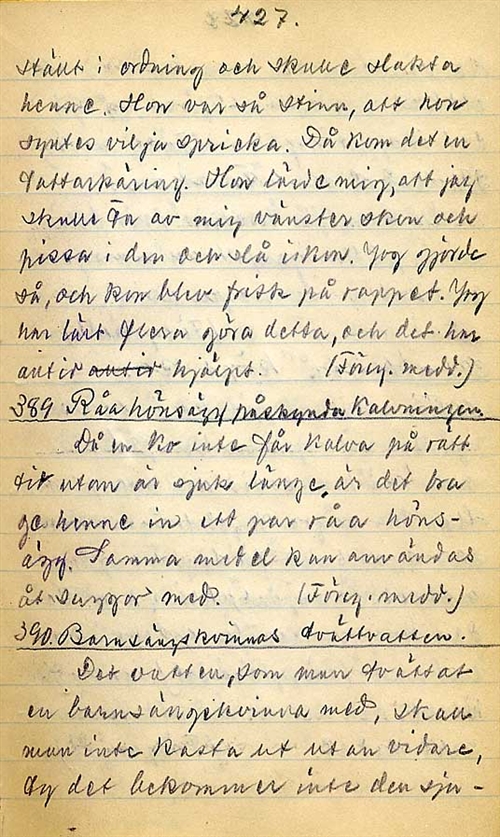 427.
ställt i ordning och skulle slakta
henne. Hon var så stinn, att hon
syntes vilja spricka. Då kom det en
tattarkäring. Hon lärde mig, att jag
skulle ta av mig vänster skon och
pissa i den och slå i kon. Jag gjorde
så, och kon blev frisk på rappet. Jag
har lärt flera göra detta, och det har
altid altid hjälpt. (Föreg. medd.)
389 Råa hönsägg påskynda kalvningen.
Då en ko inte får kalva på rätt
tid utan är sjuk länge, är det bra
ge henne in ett par råa höns-
ägg. Samma medel kan användas
åt suggor med. (Föreg. medd.)
390. Barnsängskvinnas tvättvatten.
Det vatten, som man tvättat
en barnsängskvinna med, skall
man inte kasta ut utan vidare,
ty det bekommer inte den sju-